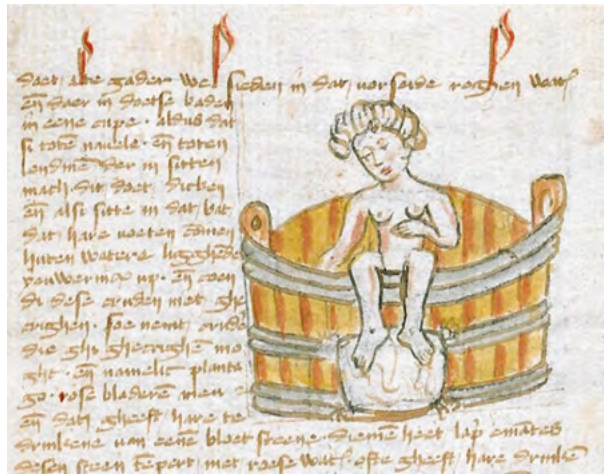 doet, alte gader wel sieden in dat vorseide reghen wat'
en̄ daer in doetse baden
in eene cupe · aldus dat
si totē navele · en̄ toten
lendinē der in sitten
mach · dit doet dicken
en̄ alsi sitte in dat bat
dat hare voeten
buten watere ligghēde
up · en̄
dese cruden niet
crighen · soe nemt cride
die ghi ghecrighē mo
ght · en̄ namelic planta
go · rose bladeren
en̄ dats gheeft hare te
drinkene van eene bloet steene · diemē heet lap emates
desen steen tēpert met roese wat' · ofte gheeft hare drinkē